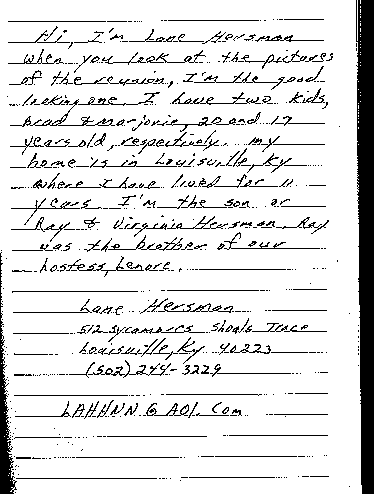 Hi, I'm Lane Hersman
when you look at the pictures
of the reunion, I'm the good
looking one. I have two kids,
Brad & Marjorie, 20 and 17
years old, respectively. My
home is in Louisville, Ky
where I have lived for 11
years. I'm the son or
Ray & Virginia Hersman. Ray
was the brother of our
hostess, Lenore.
Lane Hersman
512 Sycamores Shoals Trace
Louisville, Ky 40223
(502) 244-3229
LAHHNN@AOL.Com